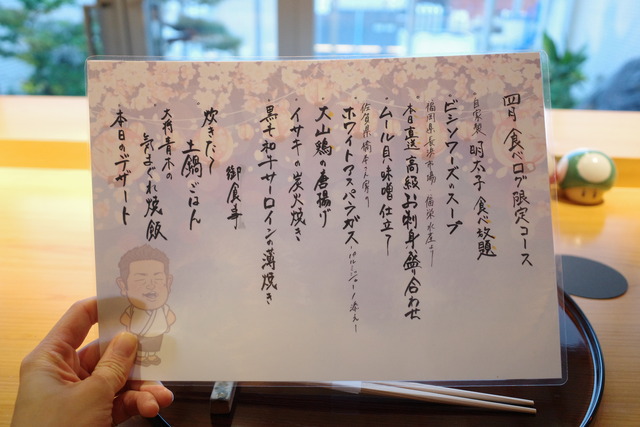 四月 食べログ限定コース
自家製 明太子 食べ放題
ビシソワーズのスープ
福岡県長浜市場 福栄水産より
本日直送 高級お刺身盛り合わせ
ムール貝、味噌仕立て
佐賀県
ホワイトアスパラガス
大山鶏の唐揚げ
イサキの炭火焼き
黒毛和牛サーロインの薄焼き
御食事
炊きたて
土鍋ごはん
大将 青木の
気まぐれ焼飯
・本日のデザート